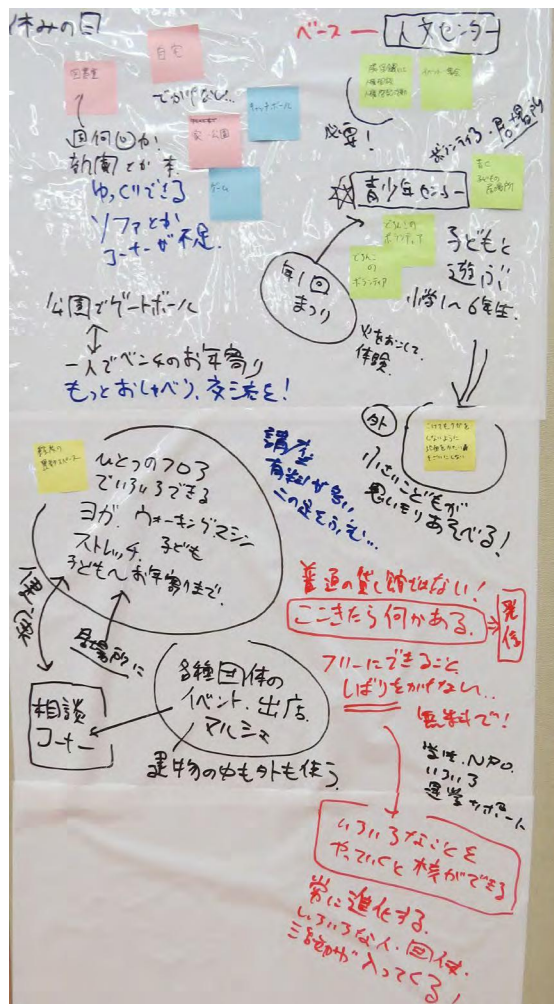 休みの日
図書室
自宅
でかけない…
キャッチボール
ゲーム
回何回か
新聞とか本
ゆっくりできる
ソファとか
コーナーが不足.
公園でゲートボール
一人でベンチのお年寄り
もっとおしゃべり、交流を!
ベース
人文センター
イベント
必要!
ボランティア・居場所
青少年センター
ボランティア
の
ボランティア
子どもと
遊ぶ
小学1〜6年生.
年1回
まつり
火をおこして
体験.
外
小さいこどもが
思いきりあそべる!
講座
有料が多い
二の足をふむ…
ひとつのフロア
でいろいろできる
ヨガ、ウォーキングマシン
ストレッチ、子ども
子ども〜お年寄りまで.
居場所に
相談
コーナー
各種団体の
イベント、出店.
マルシェ
建物の中も外も使う.
普通の貸し館ではない!
ここきたら何かある.
発信
フリーにできること
しばりをかけない..
無料で!
学生、NPO.
いろいろ
運営サポート
いろいろなことを
やっていくと核ができる
常に進化する.
いろいろな人・団体・
が入ってくる!